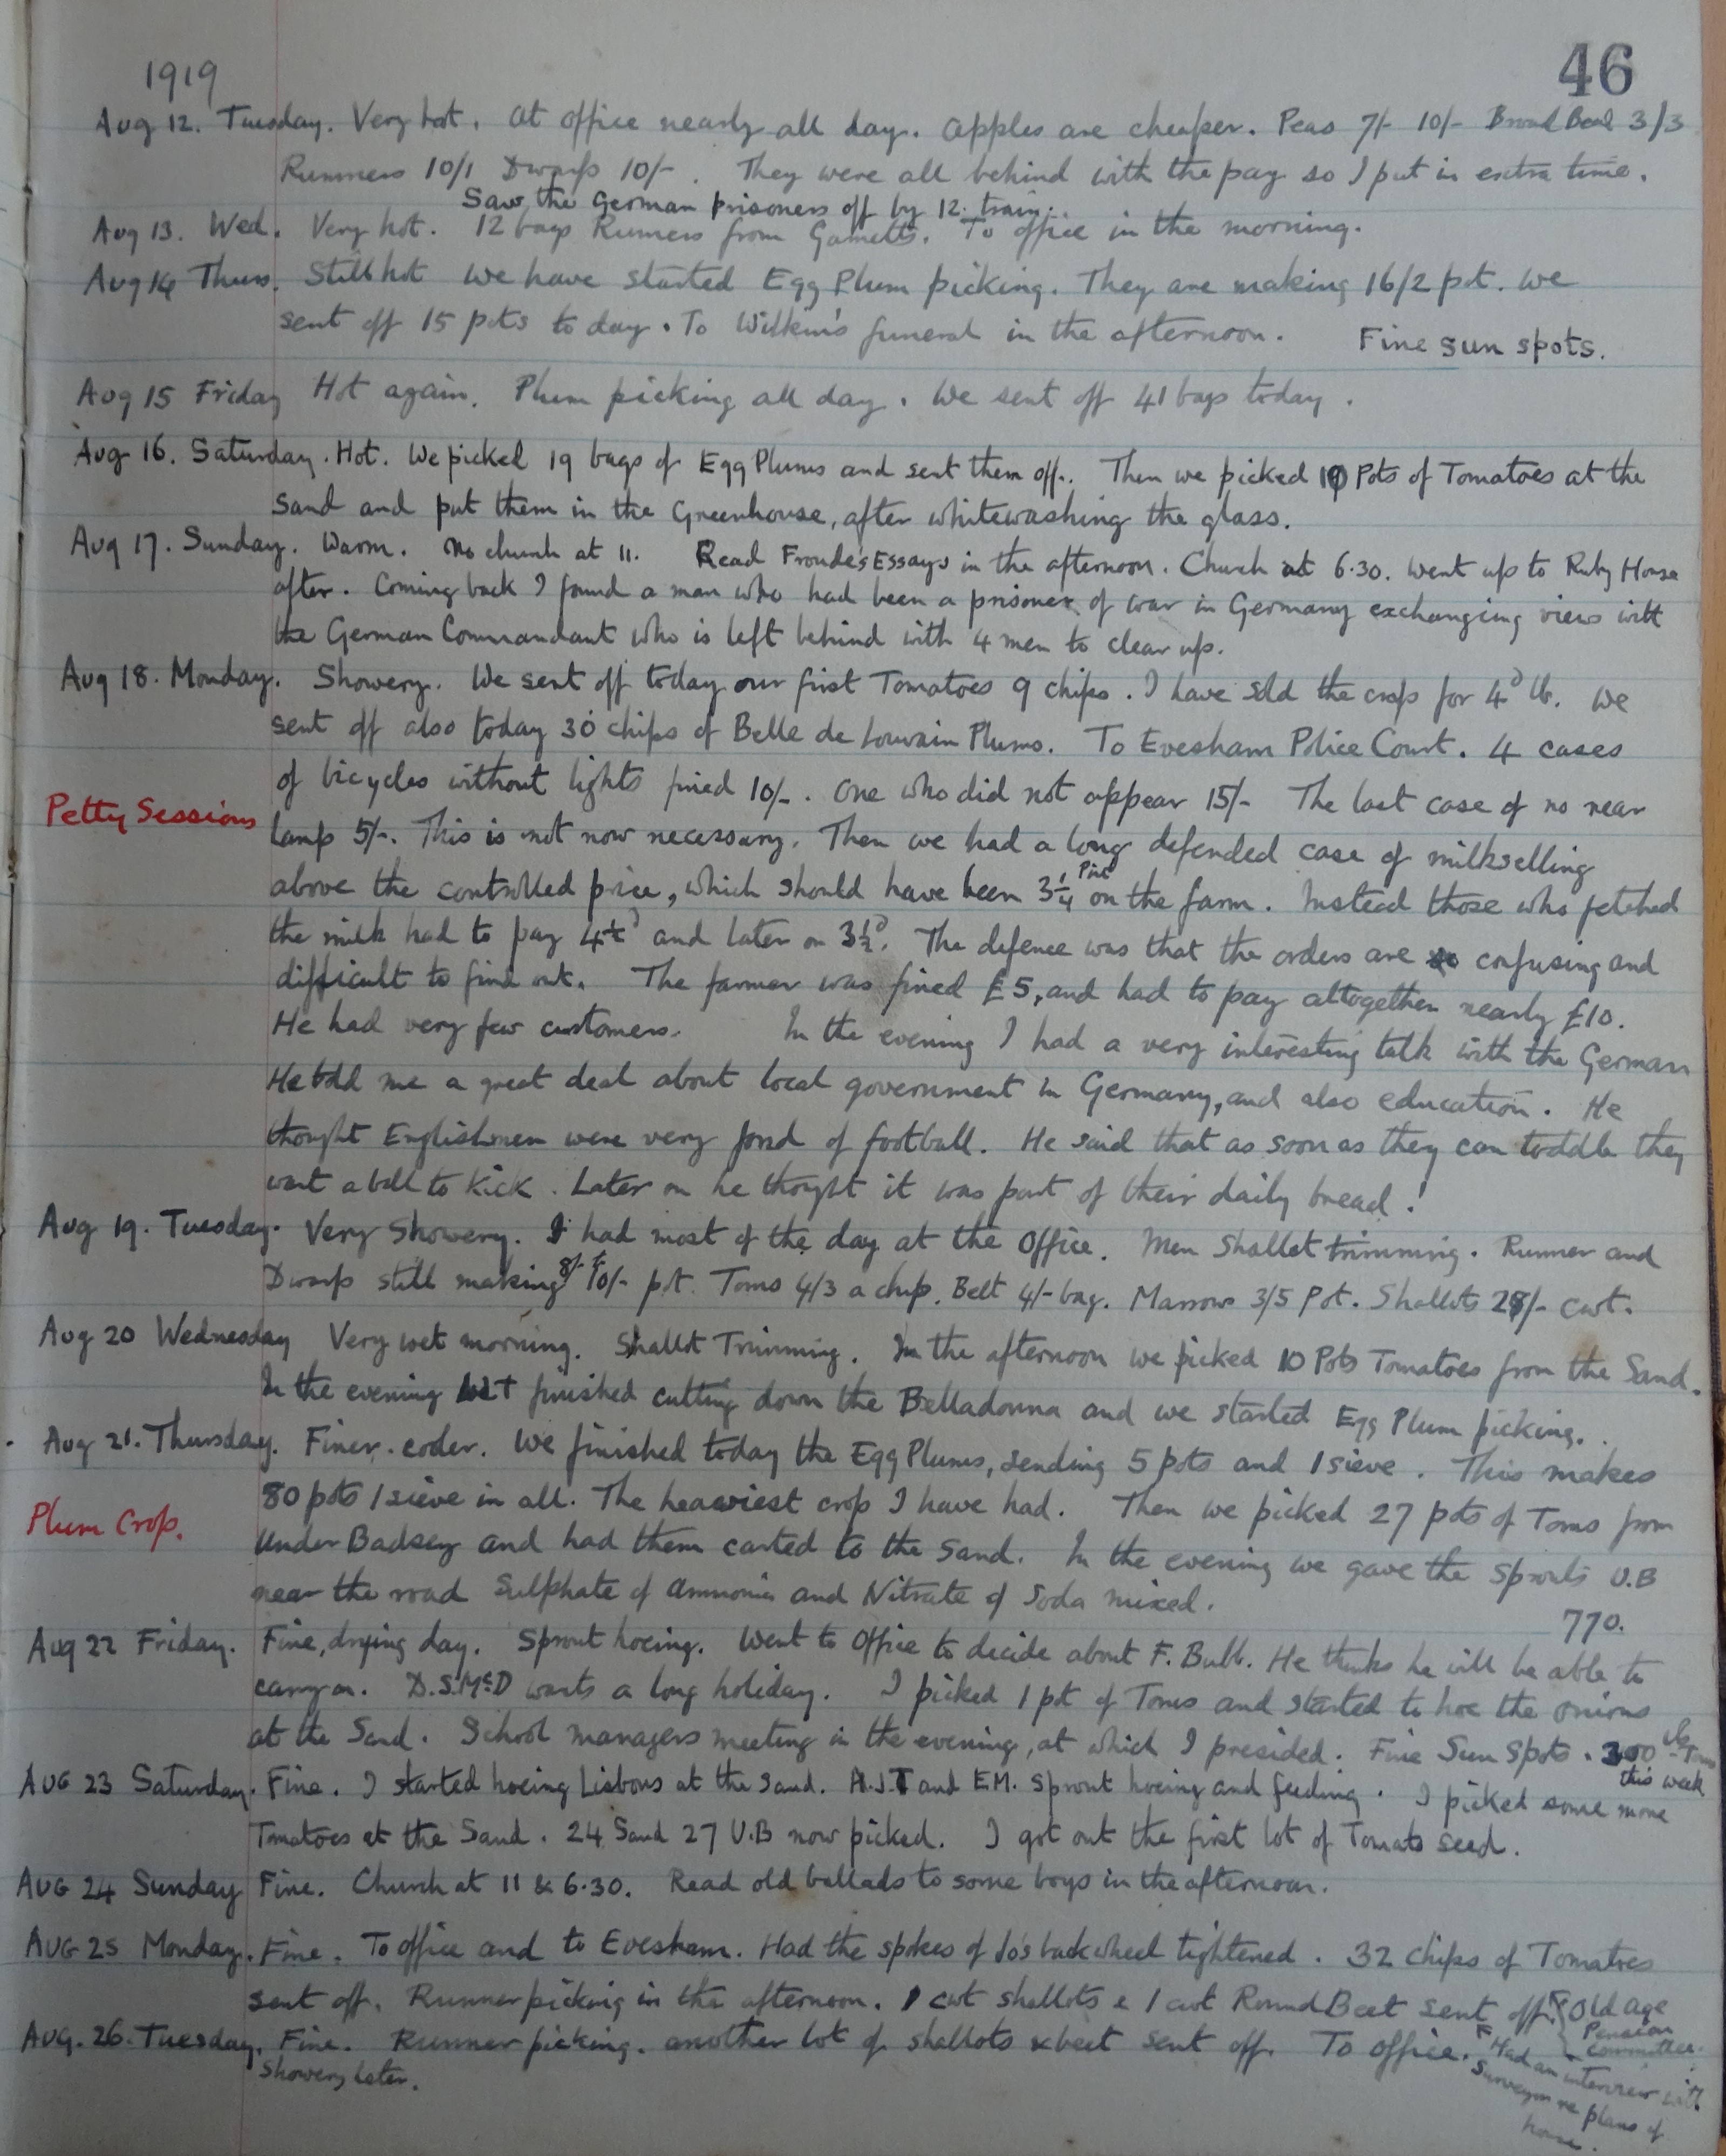 46
1919
Aug 12. Tuesday. Very hot. At office nearly all day. Apples are cheaper. Peas 7/- 10/- Broad Bea 3/3
Runners 10/1 Dwarfs 10/-. They were all behind with the pay so I put in extra time.
Saw the German prisoners off by 12. train.
Aug 13. Wed. Very hot. 12 bags Runners from Garnetts. To office in the morning.
Aug 14 Thurs. Still hot We have started Egg Plum picking. They are making 16/2 pot. We
sent off 15 pots to day. To Wilkin's funeral in the afternoon. Fine sun spots.
Aug 15 Friday Hot again. Plum picking all day. We sent off 41 bags today.
Aug 16. Saturday. Hot. We picked 19 bags of Egg Plums and sent them off. Then we picked Pots of Tomatoes at the
Sand and put them in the Greenhouse, after whitewashing the glass.
Aug 17. Sunday. Warm. No church at 11. Read Froude's Essays in the afternoon. Church at 6.30. Went up to Ruby House
after. Coming back I found a man who had been a prisoner of war in Germany exchanging views with
the German Commandant who is left behind with 4 men to clear up.
Aug 18. Monday. Showery. We sent off today our first Tomatoes 9 chips. I have sold the crop for 4d lb. We
sent off also today 30 chips of Belle de Louvain Plums. To Evesham Police Court. 4 cases
of bicycles without lights fined 10/-. One who did not appear 15/- The last case of no rear
Petty Sessions
lamp 5/-. This is not now necessary. Then we had a long defended case of milkselling
above the controlled price, which should have been 3¼ Pint on the farm. Instead those who fetched
the milk had to pay 4½d and later on 3½d. The defence was that the orders are so confusing and
difficult to find out. The farmer was fined £5, and had to pay altogether nearly £10.
He had very few customers. In the evening I had a very interesting talk with the German
He told me a great deal about local government in Germany, and also education. He
thought Englishmen were very fond of football. He said that as soon as they can toddle they
want a ball to kick. Later on he thought it was part of their daily bread!
Aug 19. Tuesday. Very Showery. I had most of the day at the Office. Men Shallot trimming. Runner and
Dwarfs still making 8/- to 10/- pot. Toms 4/3 a chip. Beet 4/- bag. Marrows 3/5 Pot. Shallots 28/- cwt.
Aug 20 Wednesday Very wet morning. Shallot Trimming. In the afternoon we picked 10 Pots Tomatoes from the Sand.
In the evening finished cutting down the Belladonna and we started Egg Plum picking.
Aug 21. Thursday. Finer. cooler. We finished today the Egg Plums, sending 5 pots and 1 sieve. This makes
80 pots 1 sieve in all. The heaviest crop I have had. Then we picked 27 pots of Toms from
Plum Crop.
Under Badsey and had them carted to the Sand. In the evening we gave the sprouts U.B
near the road Sulphate of Ammonia and Nitrate of Soda mixed.
770.
Aug 22 Friday. Fine, drying day. Sprout hoeing. Went to Office to decide about F. Bubb. He thinks he will be able to
carry on. D.S.McD wants a long holiday. I picked 1 pot of Toms and started to hoe the onions
at the Sand. School managers meeting in the evening, at which I presided. Fine Sun Spots. 300 lbs Toms
this week
AUG 23 Saturday. Fine. I started hoeing Lisbons at the Sand. A.J.T and E.M. Sprout hoeing and feeding. I picked some more
Tomatoes at the Sand. 24 Sand 27 U.B now picked. I got out the first lot of Tomato seed.
AUG 24 Sunday Fine. Church at 11 & 6.30. Read old ballads to some boys in the afternoon.
AUG 25 Monday. Fine. To office and to Evesham. Had the spokes of Jo's back wheel tightened. 32 chips of Tomatoes
sent off. Runner picking in the afternoon. 1 cwt shallots & 1 cwt Round Beet sent off. Old age
Pension
committee.
AUG. 26. Tuesday. Fine. Runner picking. another lot of shallots & beet sent off. To office. Had an interview with
Showery later.
Surveyor re plans of
house.